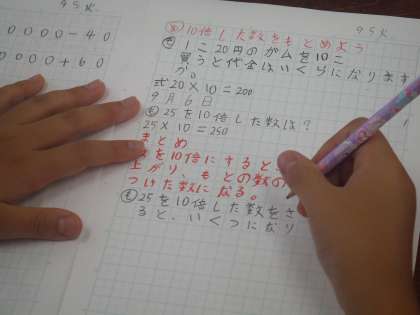 9 5 火
0000-40
0000+60
9 5 火.
め 10倍した数をもとめよう
も 1こ20円のガムを10こ
買うと代金はいくらになります
か。
式20×10=200
9月6日
も 25を10倍した数は?
25×10=250
まとめ
を10倍にすると、
上がり、もとの数の
つけた数になる。
も 25を10倍した数をさ
ると、いくつになり